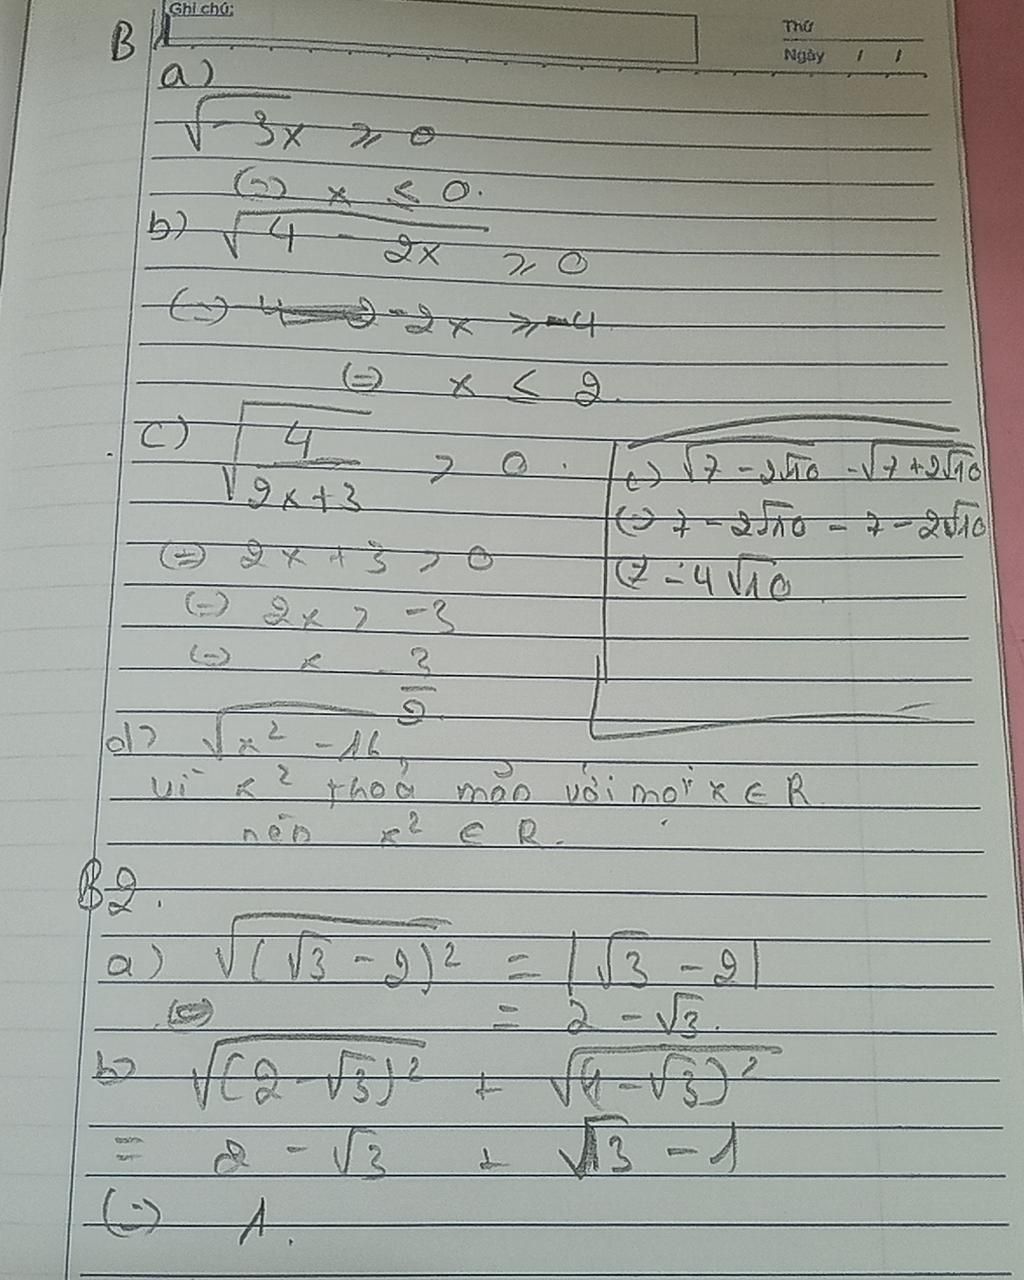 Ghi chú:
Thứ
Ngày / /
B
a)
√-3x ≥ 0
(=) x ≤ 0.
b) √4 - 2x ≥ 0
(=) -2x ≥ -4
(=) x ≤ 2.
c) √4/2x+3 > 0.
(=) 2x + 3 > 0
(=) 2x > -3
(=) x 3/2
c) √7 - 2√10 - √7 + 2√10
(=) 7 - 2√10 - 7 - 2√10
(= -4√10
d) √x² - 16
vì x² thoả mãn với mọi x ∈ R
nên x² ∈ R.
B2.
a) √(√3 - 2)² = |√3 - 2|
= 2 - √3.
b) √(2 - √3)² + √(1 - √3)²
= 2 - √3 + √3 - 1
(=) 1.